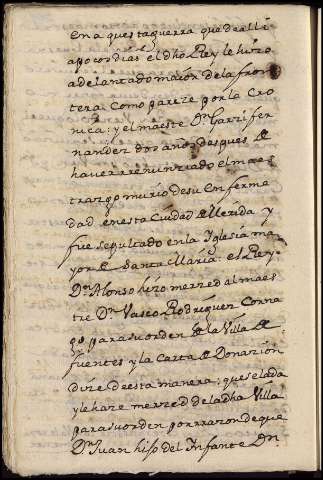 en aquesta guerra que de alli
apocos dias el dho Rey le hizo
adelantado maior de la fron
tera. Como pareze por la Cro
nica: y el maestre Dn Garzi fer
nandez dos años despues de
haver renunziado el maes
trazgo murio de su enferme
dad en esta Ciudad de Merida y
fue sepultado en la Iglesia ma
yor de Santa Maria: el Rey
Dn Alonso hizo merzed al maes
tre Dn Vasco Rodriguez Corna
go para su orden de la Villa de
fuentes y la Carta de Donazion
dize de esta manera: que se la da
y le haze merzed de la dha Villa
para su orden por razon de que
Dn Juan hijo del Infante Dn